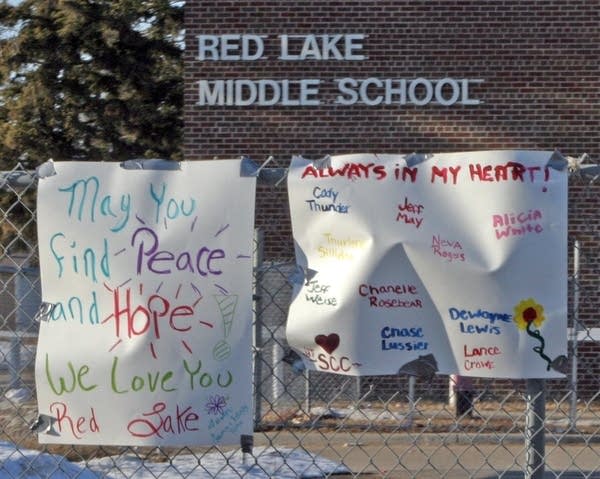 RED LAKE
MIDDLE SCHOOL
May You
find Peace
and Hope
We Love You
Red Lake
ALWAYS IN MY HEART!
Cody
Thunder
Jeff
May
Alicia
White
Neva
Rogers
Jeff
Weise
Chanelle
Rosebear
Dewayne
Lewis
Chase
Lussier
Lance
Crowe
SCC